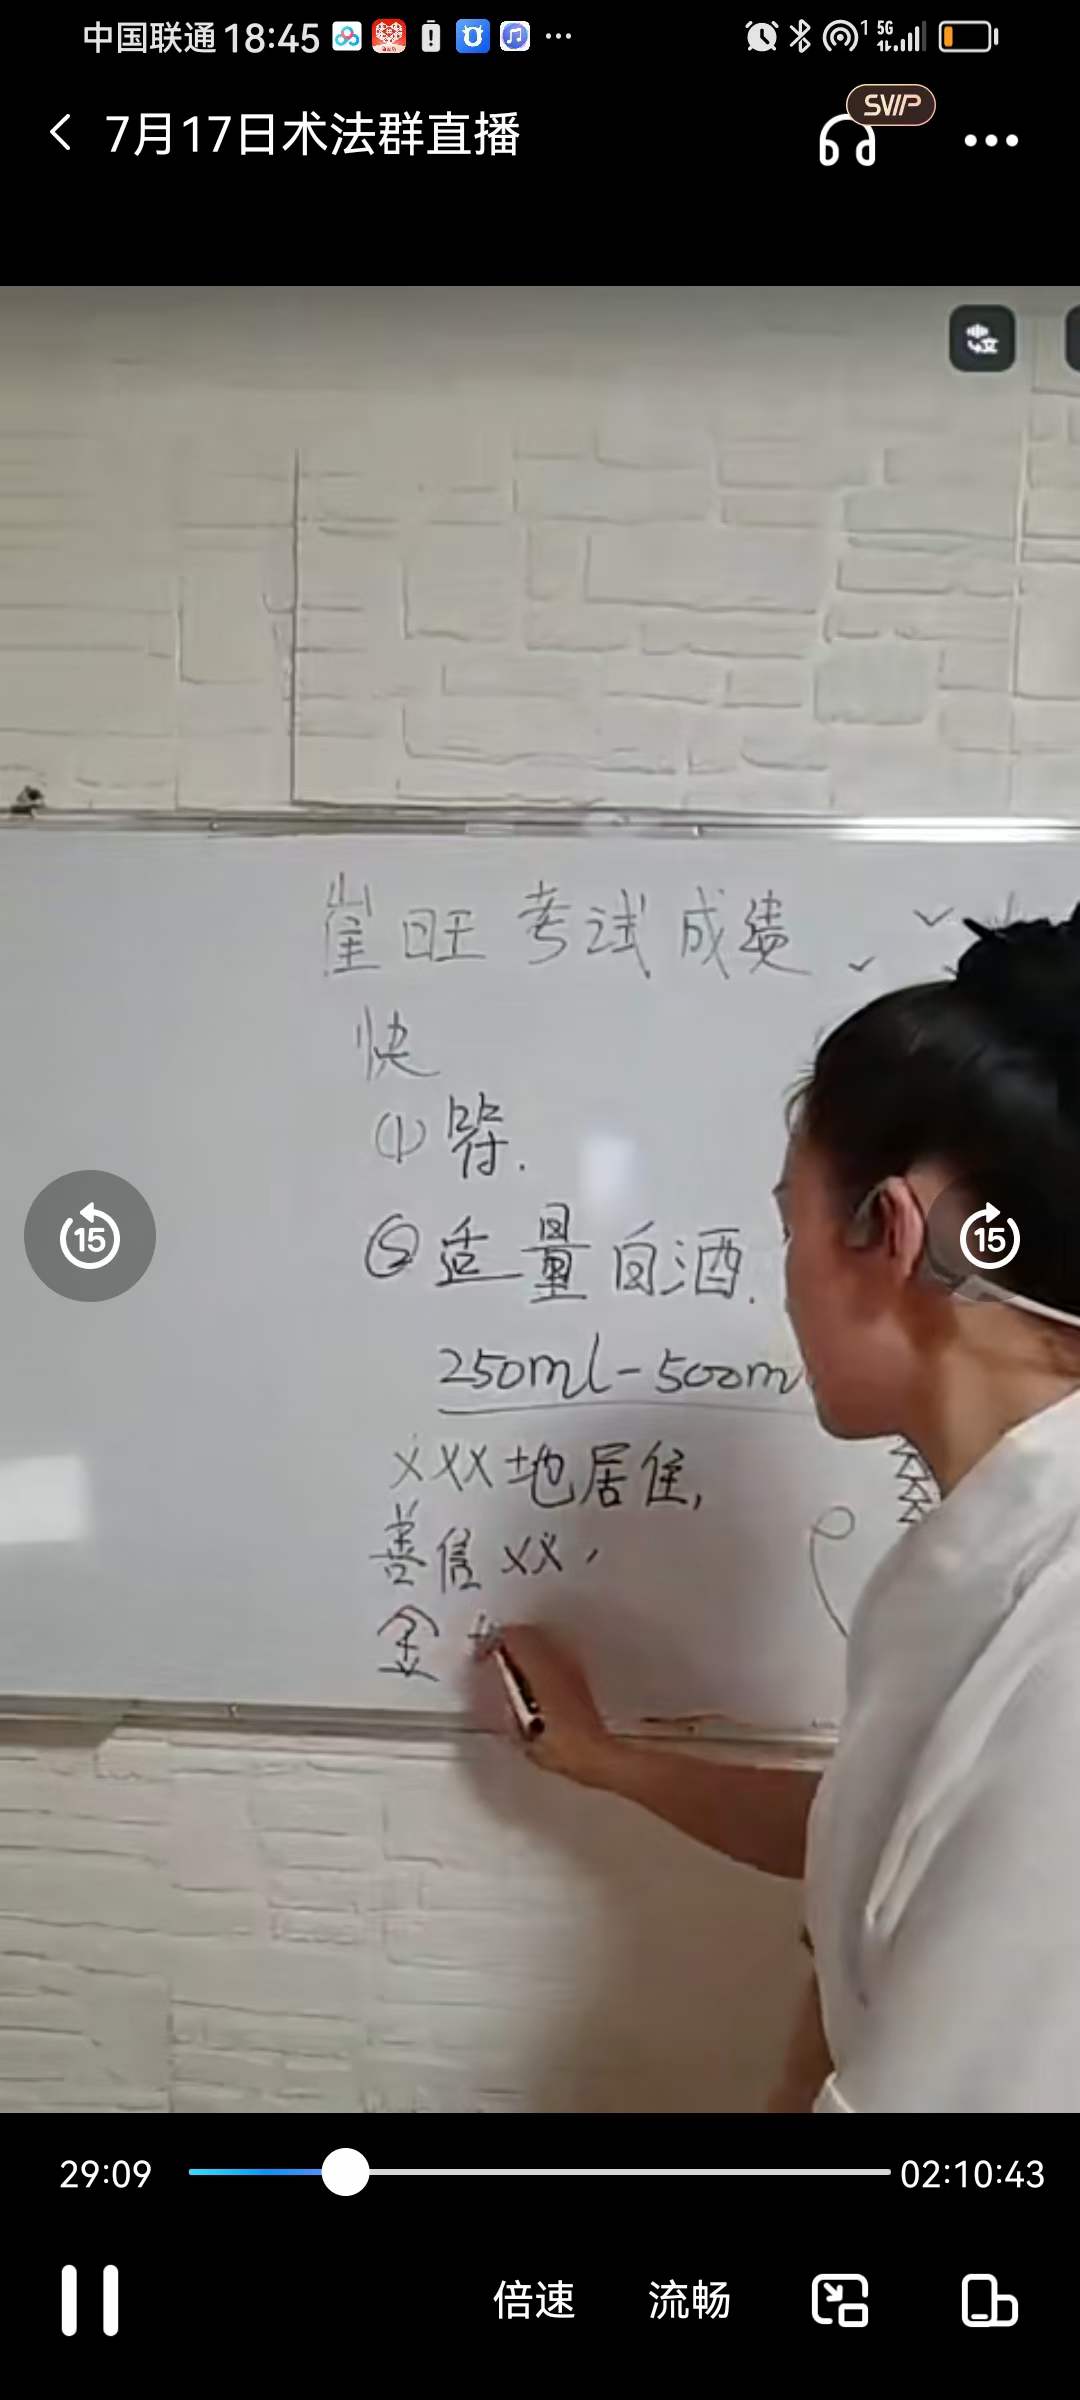 中国联通 18:45
1 5G
7月17日术法群直播
SVIP
崔旺考试成绩
快
① 符.
② 适量白酒.
250ml-500m
XXX地居住,
善信XX,
金
15
15
29:09
02:10:43
倍速
流畅